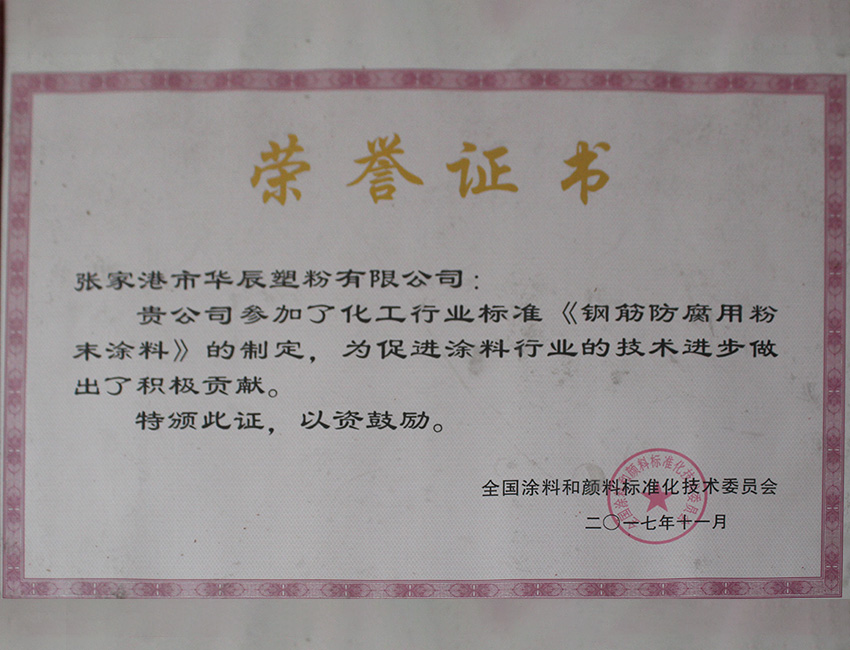 荣誉证书
张家港市华辰塑粉有限公司：
贵公司参加了化工行业标准《钢筋防腐用粉
末涂料》的制定，为促进涂料行业的技术进步做
出了积极贡献。
特颁此证，以资鼓励。
全国涂料和颜料标准化技术委员会
二〇一七年十一月
全国涂料和颜料标准化技术委员会